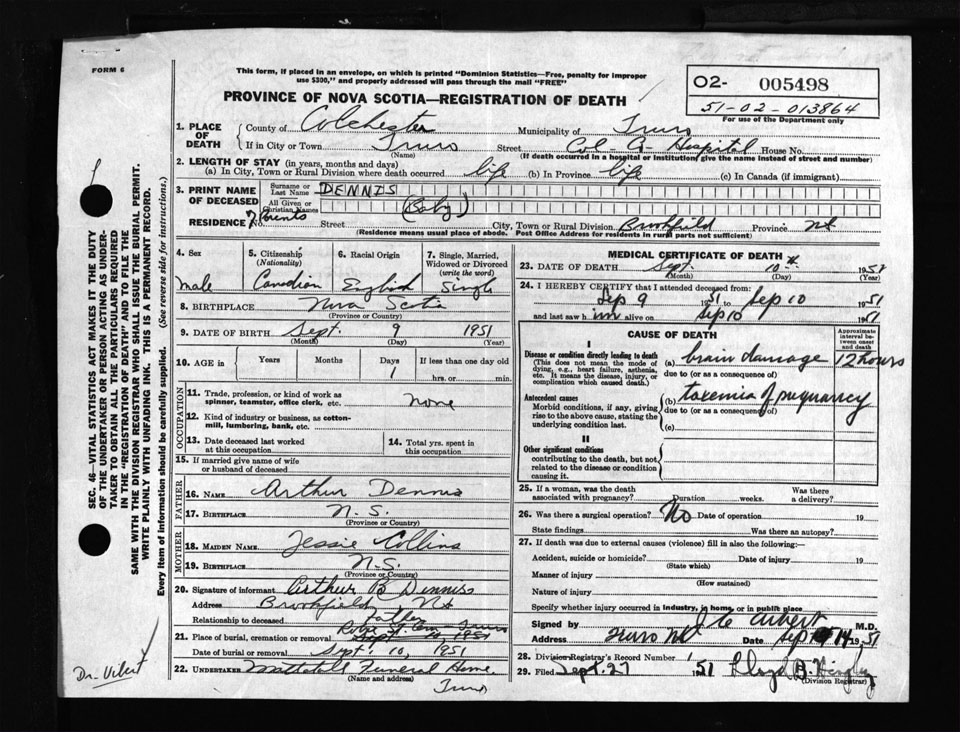 FORM 6
This form, if placed in an envelope, on which is printed "Dominion Statistics—Free, penalty for improper
use $300," and properly addressed will pass through the mail "FREE"
PROVINCE OF NOVA SCOTIA—REGISTRATION OF DEATH
O2- 005498
51-02-013864
For use of the Department only
1. PLACE OF DEATH
County of Colchester Municipality of Truro
If in City or Town Truro Street Col Co Hospital House No.
(Name) (If death occurred in a hospital or institution, give the name instead of street and number)
2. LENGTH OF STAY (in years, months and days)
(a) In City, Town or Rural Division where death occurred life (b) In Province life (c) In Canada (if immigrant)
3. PRINT NAME OF DECEASED
Surname or Last Name DENNIS
All Given or Christian Names (Baby)
RESIDENCE Parents Street City, Town or Rural Division Brookfield Province NS
(Residence means usual place of abode. Post Office Address for residents in rural parts not sufficient)
4. Sex male
5. Citizenship (Nationality) Canadian
6. Racial Origin English
7. Single, Married, Widowed or Divorced (write the word) Single
8. BIRTHPLACE Nova Scotia
(Province or Country)
9. DATE OF BIRTH Sept. 9 1951
(Month) (Day) (Year)
10. AGE in Years Months Days 1 If less than one day old hrs. or min.
OCCUPATION
11. Trade, profession, or kind of work as spinner, teamster, office clerk, etc. none
12. Kind of industry or business, as cotton-mill, lumbering, bank, etc.
13. Date deceased last worked at this occupation
14. Total yrs. spent in this occupation
15. If married give name of wife or husband of deceased
FATHER
16. NAME Arthur Dennis
17. BIRTHPLACE N.S.
(Province or Country)
MOTHER
18. MAIDEN NAME Jessie Collins
19. BIRTHPLACE N.S.
(Province or Country)
20. Signature of informant Arthur B Dennis
Address Brookfield, NS
Relationship to deceased father
21. Place of burial, cremation or removal Truro
Date of burial or removal Sept. 10, 1951
22. UNDERTAKER Mattatall Funeral Home
(Name and address)
Truro
MEDICAL CERTIFICATE OF DEATH
23. DATE OF DEATH Sept. 10th 1951
(Month) (Day) (Year)
24. I HEREBY CERTIFY that I attended deceased from:
Sep 9 1951 to Sep 10 1951
and last saw him alive on Sep 10 1951
CAUSE OF DEATH
Approximate interval between onset and death
I
Disease or condition directly leading to death
(This does not mean the mode of dying, e.g., heart failure, asthenia, etc. It means the disease, injury, or complication which caused death.)
(a) brain damage 12 hours
due to (or as a consequence of)
Antecedent causes
Morbid conditions, if any, giving rise to the above cause, stating the underlying condition last.
(b) toxemia of pregnancy
due to (or as a consequence of)
(c)
II
Other significant conditions
contributing to the death, but not related to the disease or condition causing it.
25. If a woman, was the death associated with pregnancy? Duration weeks. Was there a delivery?
26. Was there a surgical operation? No Date of operation 19
State findings Was there an autopsy?
27. If death was due to external causes (violence) fill in also the following:—
Accident, suicide or homicide? Date of injury 19
(State which)
Manner of injury
(How sustained)
Nature of injury
Specify whether injury occurred in industry, in home, or in public place
Signed by M.D.
Address Truro NS Date Sep 14 1951
28. Division Registrar's Record Number
29. Filed Sept. 27 1951 Lloyd B.
(Division Registrar)
SEC. 46—VITAL STATISTICS ACT MAKES IT THE DUTY
OF THE UNDERTAKER OR PERSON ACTING AS UNDER-
TAKER TO OBTAIN ALL THE PARTICULARS REQUIRED
IN THE "REGISTRATION OF DEATH" AND TO FILE THE
SAME WITH THE DIVISION REGISTRAR WHO SHALL ISSUE THE BURIAL PERMIT.
WRITE PLAINLY WITH UNFADING INK. THIS IS A PERMANENT RECORD.
Every item of information should be carefully supplied. (See reverse side for instructions.)
Dr. Vibert